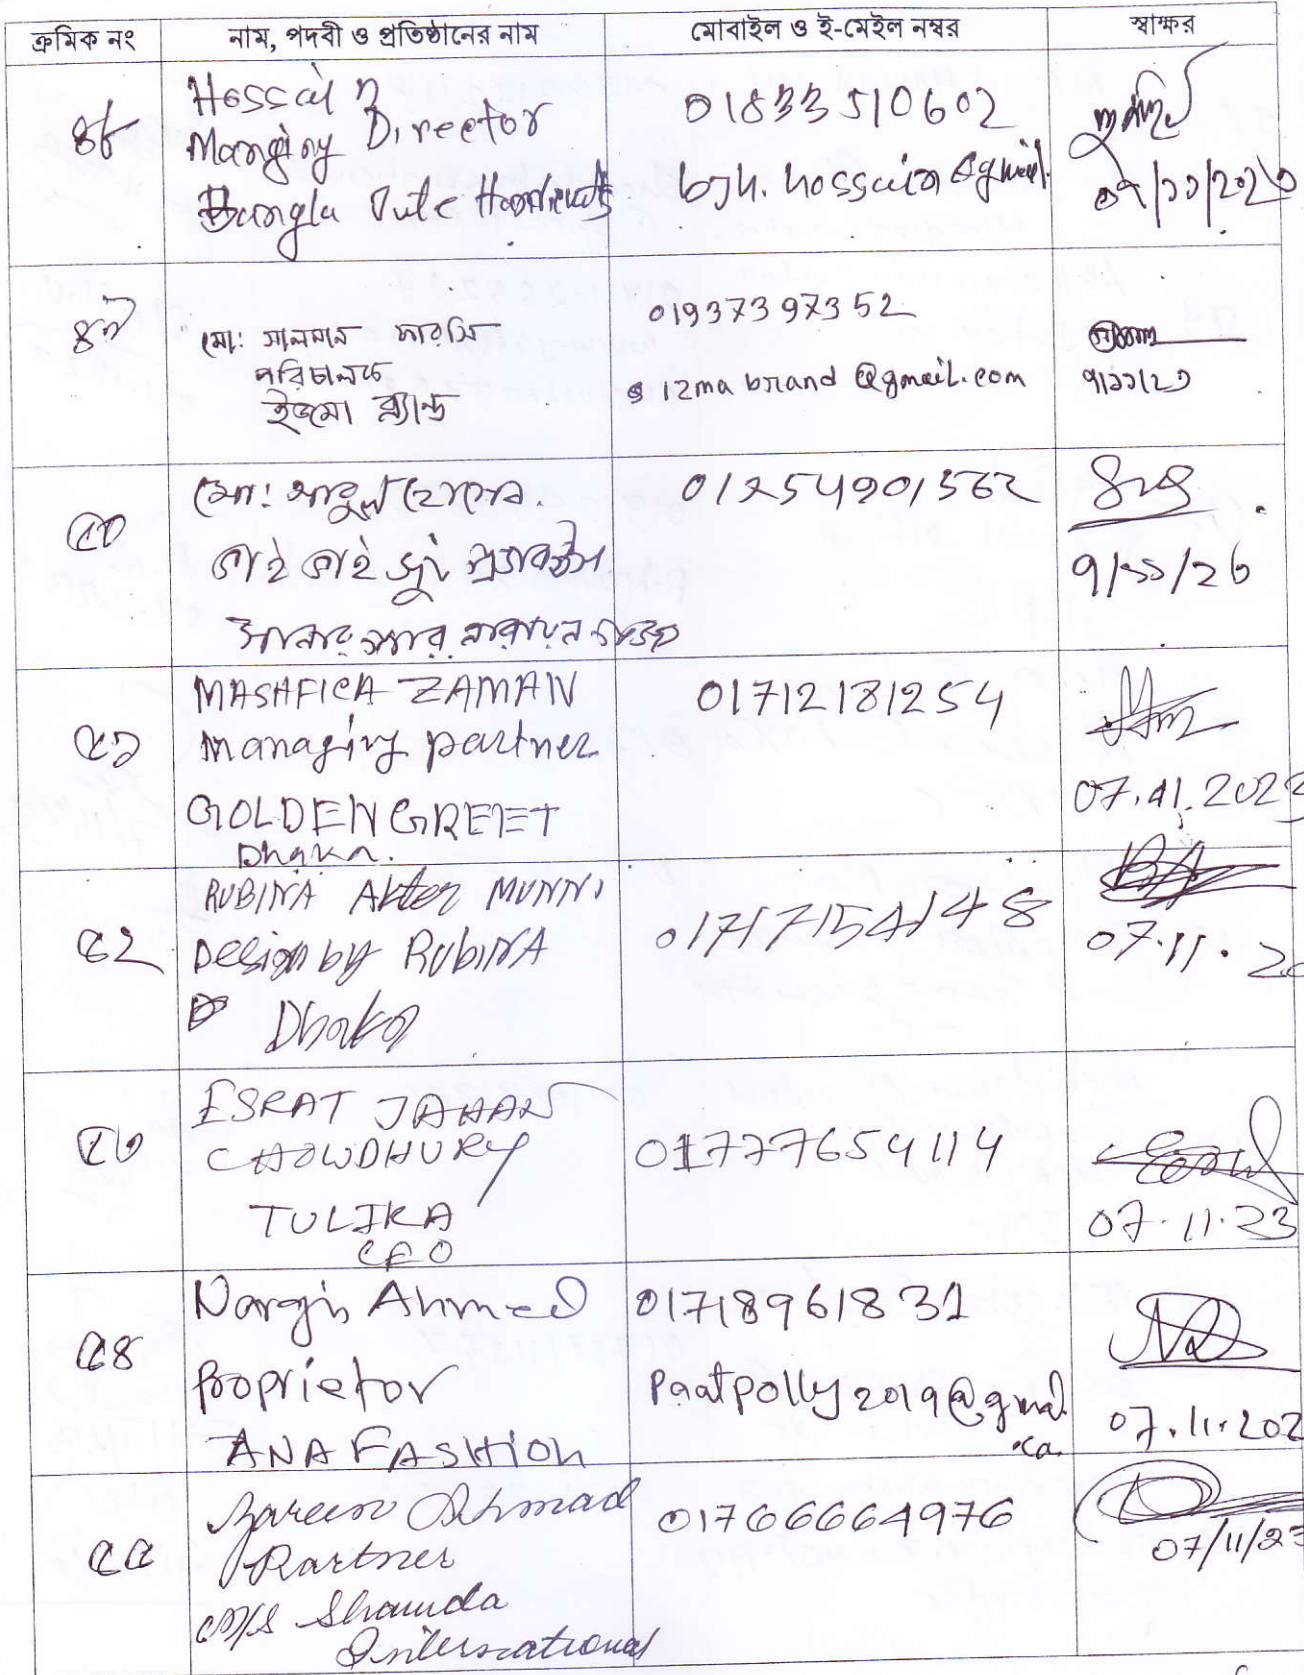 ক্রমিক নং নাম, পদবী ও প্রতিষ্ঠানের নাম মোবাইল ও ই-মেইল নম্বর স্বাক্ষর
৪৮
Hossain
Manging Director
Bangla Jute
01833510602
bjh.hossain@gmail.
০৭/১১/২০২৩
৪৯
মো: সালমান ফারসি
পরিচালক
ইজমা ব্র্যান্ড
01937397352
izma brand @gmail.com
৭/১১/২৩
৫০
মো: আবুল হোসেন.
ভাই ভাই
৭/১১/২৩
৫১
MASHFICA ZAMAN
Managing partner
GOLDEN GREET
Dhaka.
01712181254
07.11.2023
৫২
RUBINA Akter MUNNI
Design by RubiNA
Dhaka
01717154148
07.11.20
৫৩
ESRAT JAHAN
CHOWDHURY
TULIKA
CEO
01777654114
07.11.23
৫৪
Nargis Ahmed
Proprietor
ANA FASHION
01718961831
Paatpolly2019@gmail
.co
07.11.202
৫৫
Zareen Ahmad
Partner
M/S Shamda
International
01766664976
07/11/23